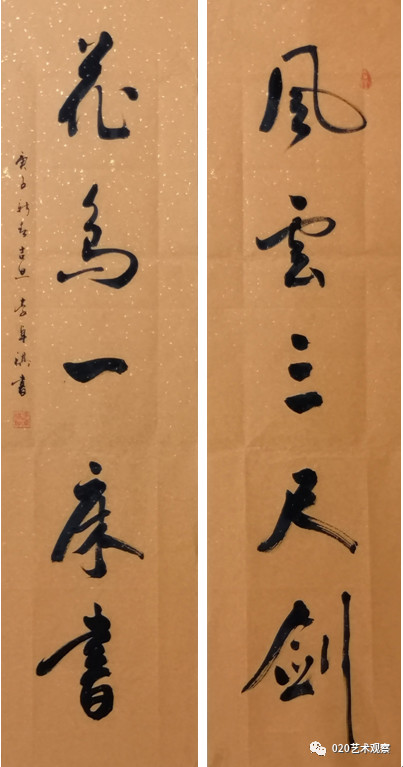 風雲三尺劍
花鳥一床書
庚子 書
020艺术观察